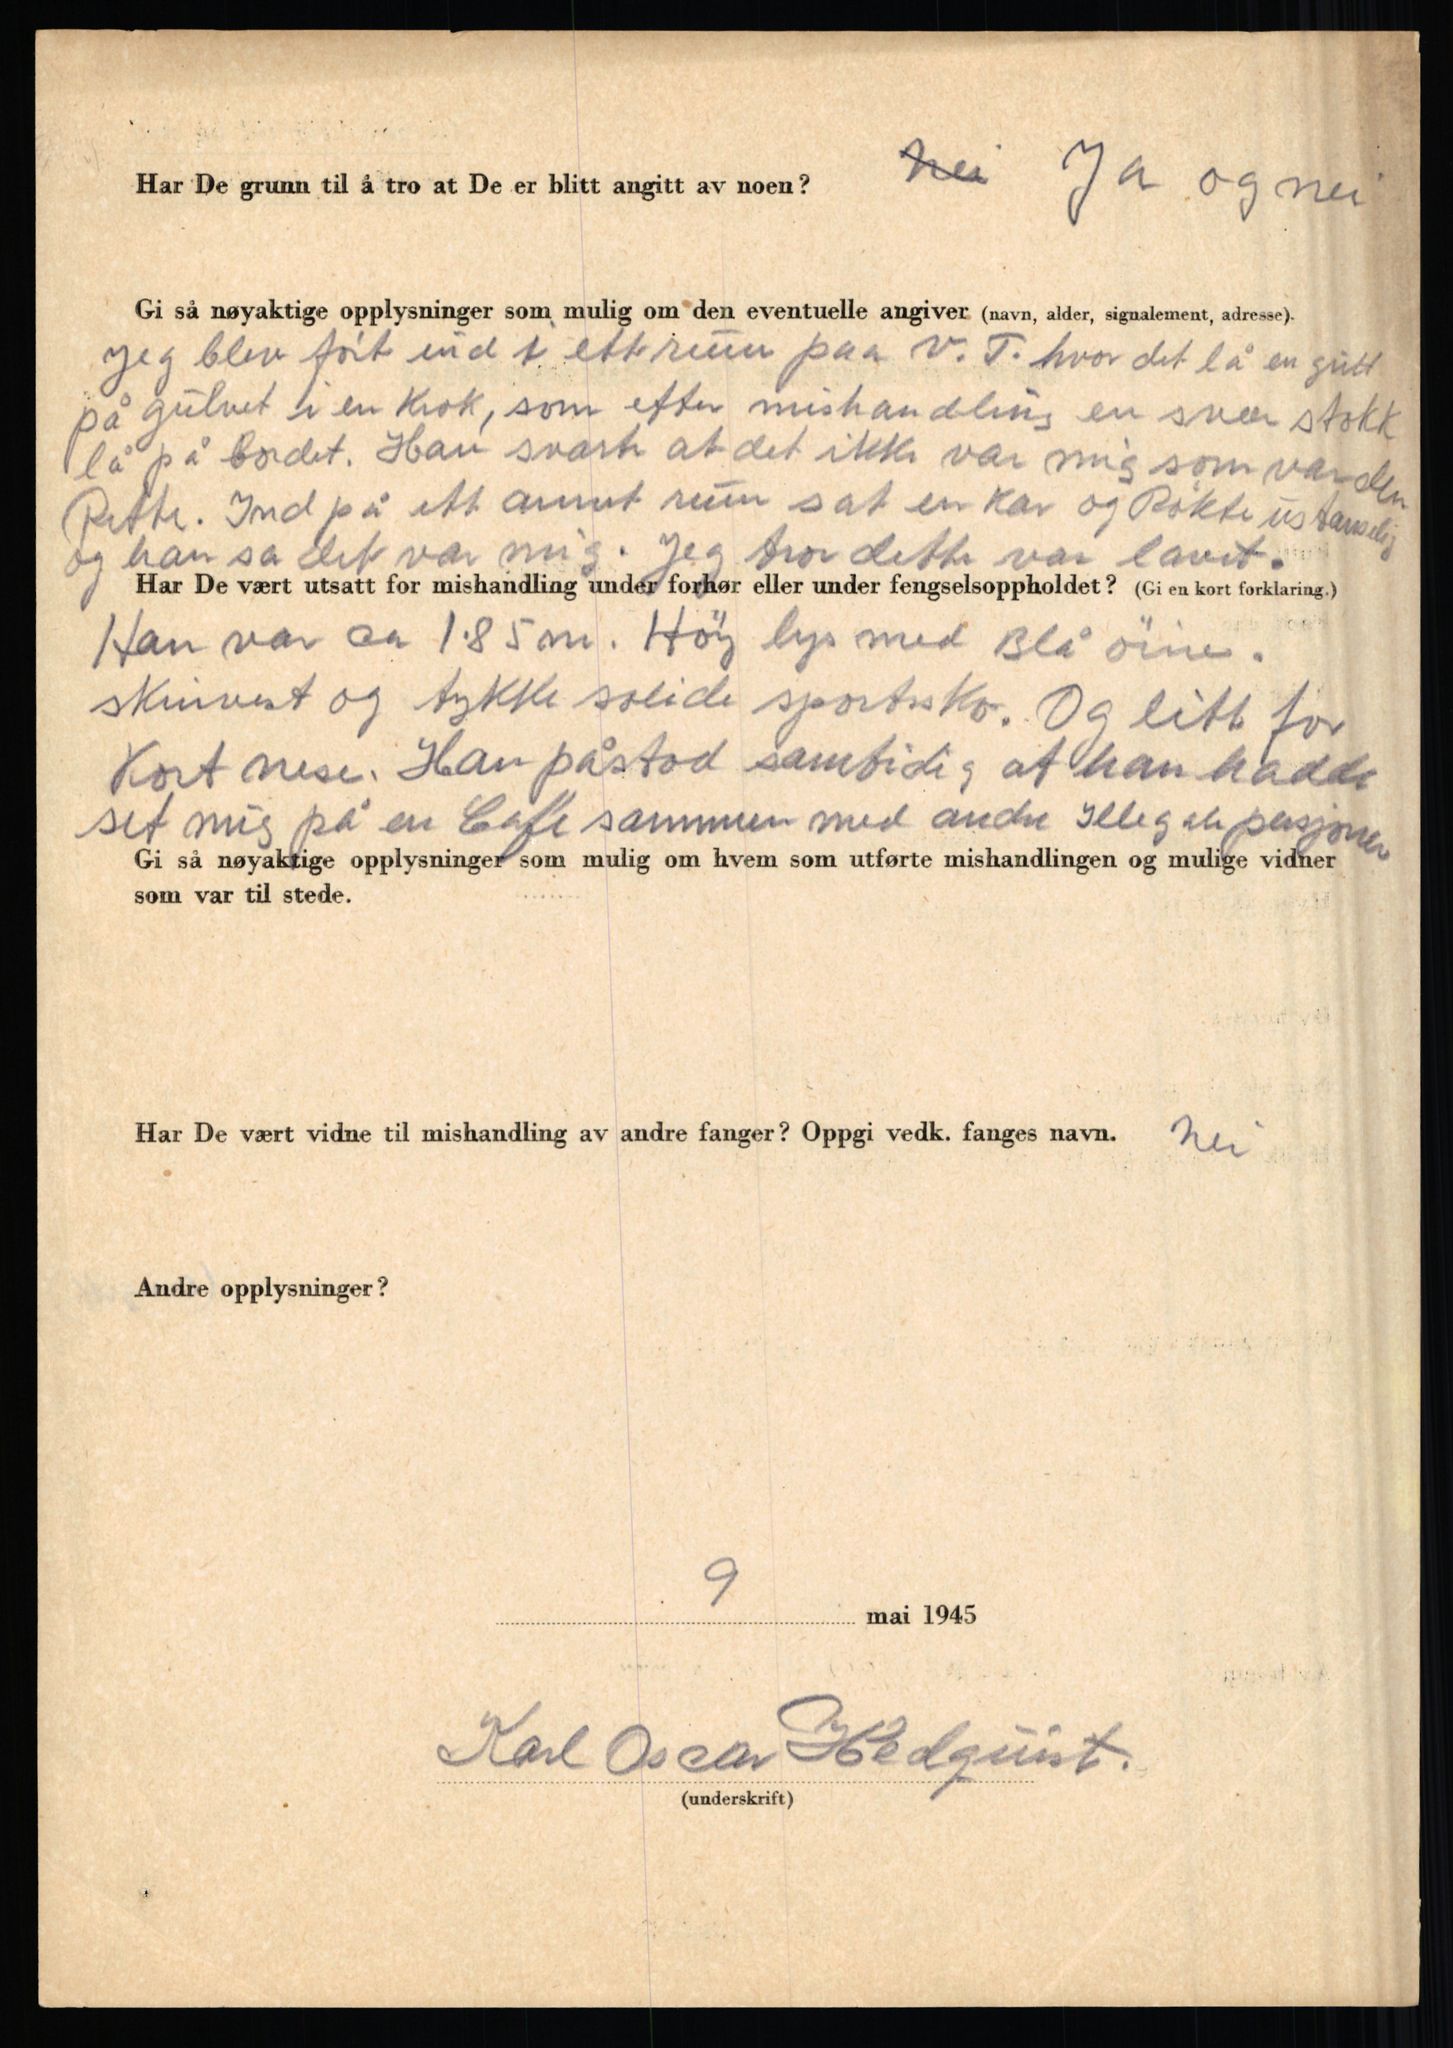 Har De grunn til å tro at De er blitt angitt av noen? nei Ja og nei
Gi så nøyaktige opplysninger som mulig om den eventuelle angiver (navn, alder, signalement, adresse).
Jeg blev ført ind i ett rum paa V. T. hvor det lå en gutt
på gulvet i en krok, som efter mishandling en svær stokk
lå på bordet. Han svarte at det ikke var mig som var den
Rette. Ind på ett annet rum sat en kar og Røkte ustanselig
og han sa det var mig. Jeg tror dette var lavet.
Har De vært utsatt for mishandling under forhør eller under fengselsoppholdet? (Gi en kort forklaring.)
Han var ca 1.85 m. Höy lys med Blå öine.
skinvest og tykke solide sportssko. Og litt for
Kort nese. Han påstod samtidig at han hadde
set mig på en Cafe sammen med andre Illegale persjoner
Gi så nøyaktige opplysninger som mulig om hvem som utførte mishandlingen og mulige vidner
som var til stede.
Har De vært vidne til mishandling av andre fanger? Oppgi vedk. fanges navn. Nei
Andre opplysninger?
9 mai 1945
Karl Oscar Hedquist.
(underskrift)